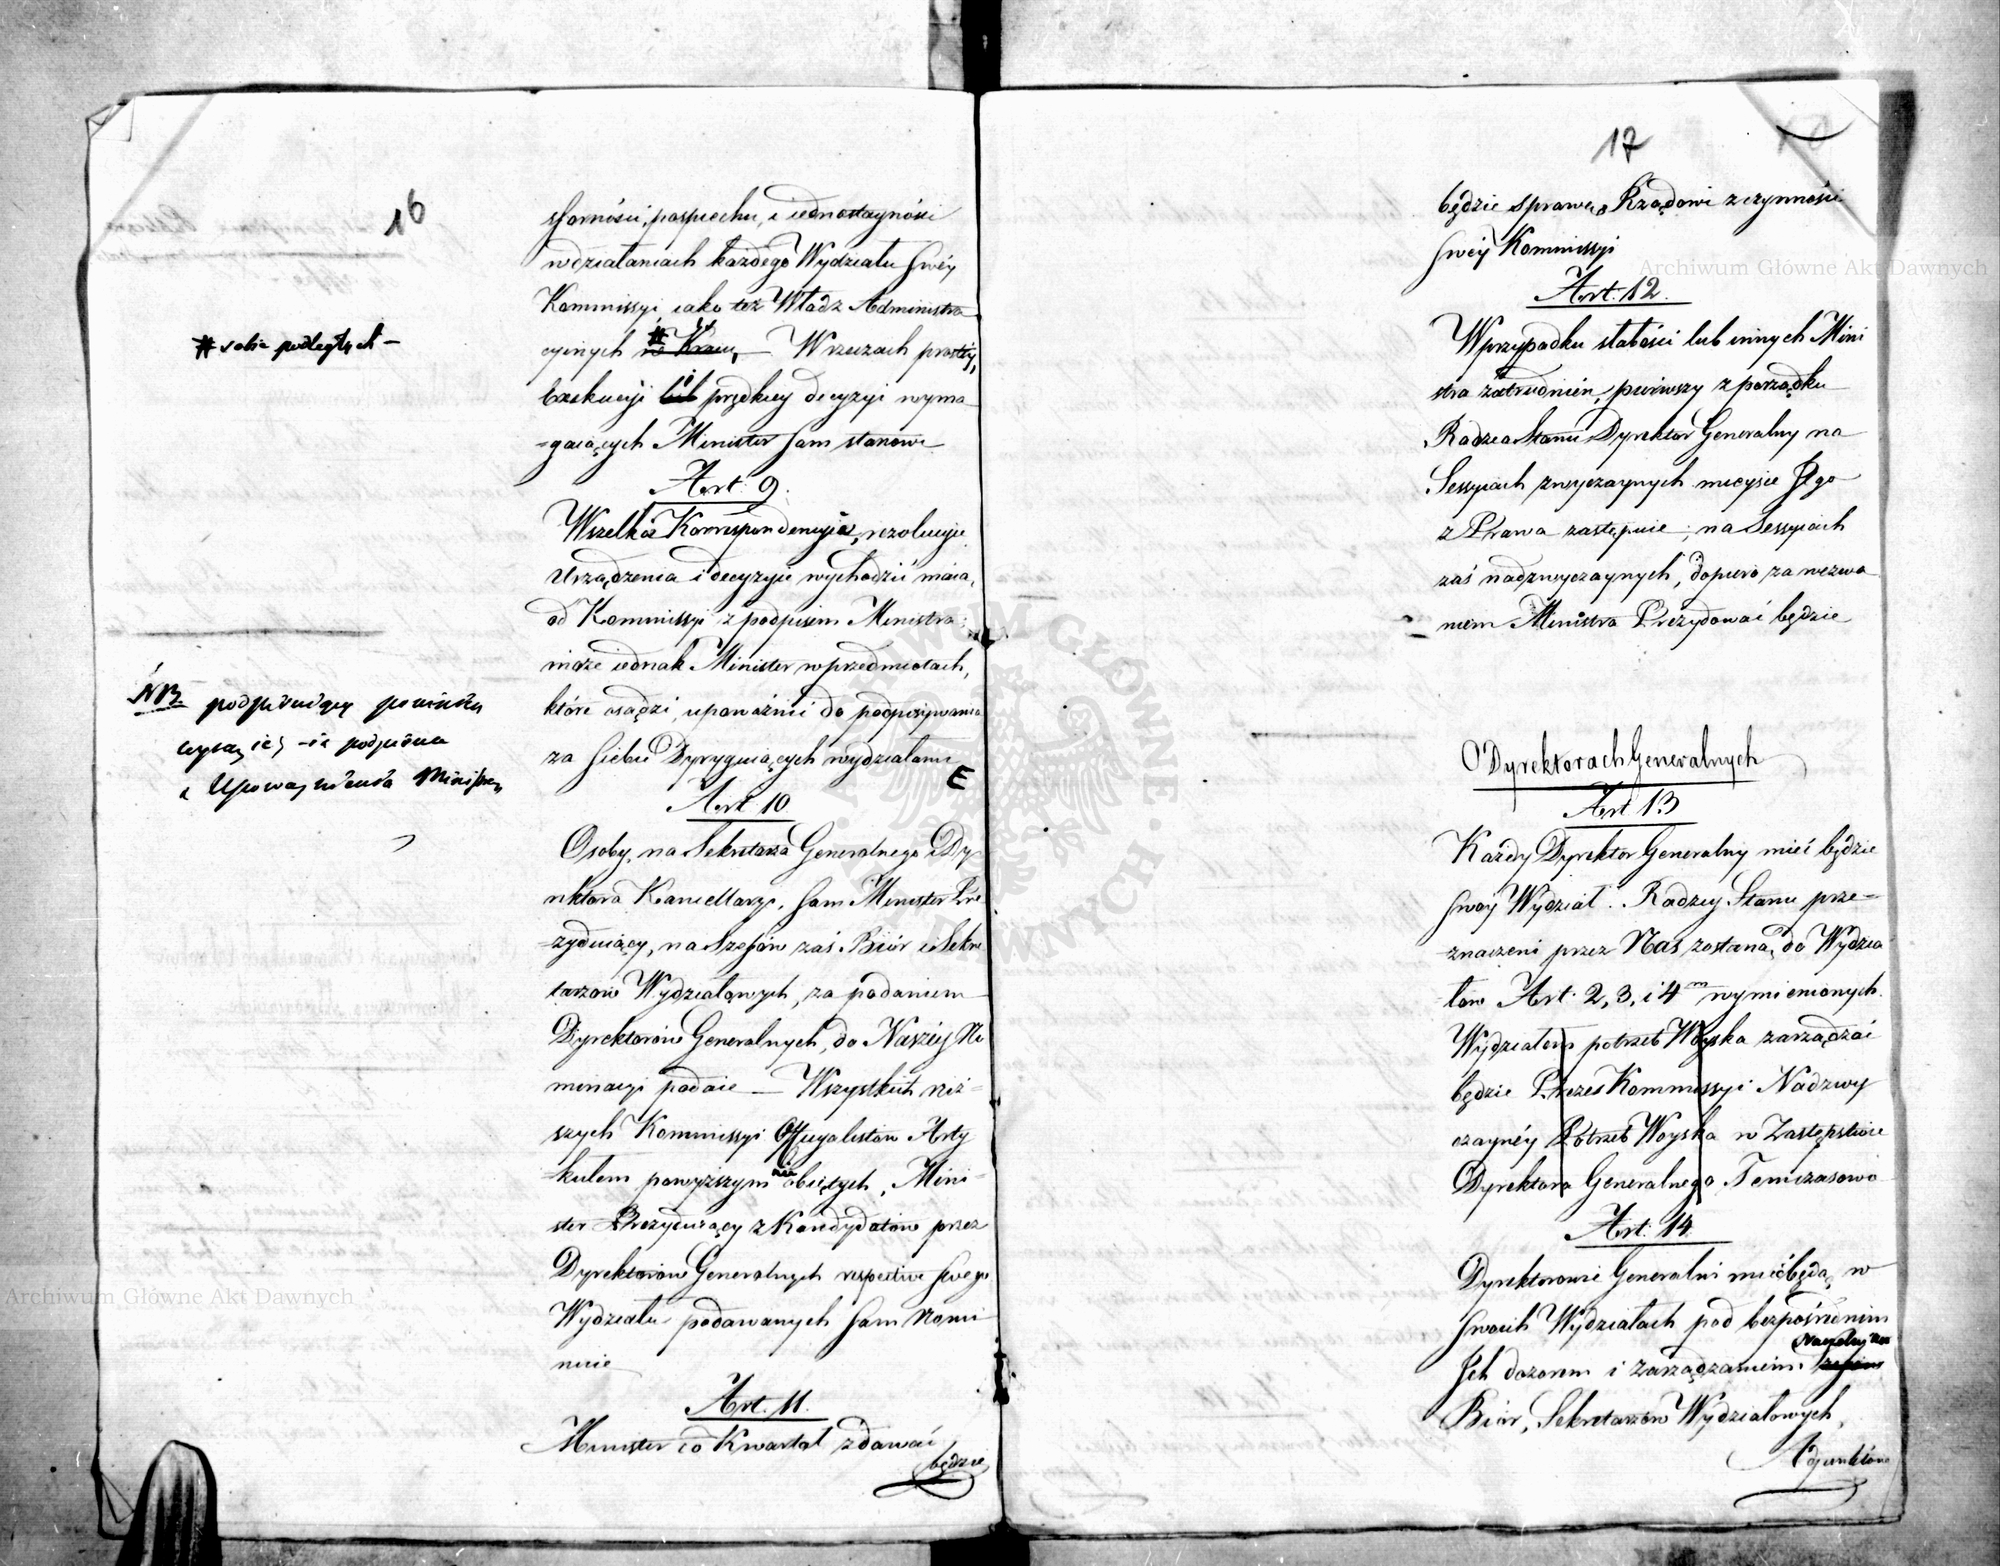 16
sforności, pospiechu, i iednostayności
w działaniach każdego Wydziału swéy
Kommissyi, iako też Władz Administra
cyinych # w Kraiu, — W rzeczach prostéy
Exekucyi lub i prędkiey decyzyi wyma
-gaiących Minister sam stanowi
# sobie podległych —
Art. 9.
Wszelka Korrespondencyia, rezolucyie
Urządzenia i decyzyie wychodzić maią,
od Kommissyi z podpisem Ministra;
może iednak Minister w przedmiotach,
które osądzi, upoważnić do podpisywania
za siebie Dyryguiących wydziałami E
NB. podpisuiący powinien
wyrazić, iż podpisuie
z Upoważnienia Ministra
Art 10
Osoby, na Sekretarza Generalnego i Dy
rektora Kancellaryi, sam Minister Pre
-zyduiący, na Szefów zaś Biór i Sekre
tarzów Wydziałowych, za podaniem
Dyrektorów Generalnych, do Naszéy No
minacyi podaie — Wszystkich niż-
szych Kommissyi Officyalistów Arty
-kułem powyższym nie obiętych, Mini-
ster Prezyduiący z Kandydatów przez
Dyrektorów Generalnych respective swego
Wydziału podawanych sam nomi
nuie
Art. 11.
Minister co Kwartał zdawać
będzie
17
będzie sprawę Rządowi z czynności
swéy Kommissyi
Art. 12.
W przypadku słabości lub innych Mini
stra zatrudnień, pierwszy z porządku
Radzca Stanu Dyrektor Generalny na
Sessyiach zwyczaynych mieysce Jego
z Prawa zastępuie; na Sessyiach
zaś nadzwyczaynych, dopiero za wezwa
niem Ministra Prezydować będzie
O Dyrektorach Generalnych
Art 13
Każdy Dyrektor Generalny mieć będzie
swóy Wydział. Radzcy Stanu prze-
-znaczeni przez Nas zostaną, do Wydzia
łów Art. 2, 3, i 4m wymienionych.
Wydziałem potrzeb Woyska zarządzać
będzie Prezes Kommissyi Nadzwy
czaynéy Potrzeb Woyska w Zastępstwie
Dyrektora Generalnego Temczasowo
Art. 14.
Dyrektorowie Generalni mieć będą, w
swoich Wydziałach pod bezpośrednim
Ich dozorem i zarządzaniem
Biór, Sekretarzów Wydziałowych,
Adjunktów
Archiwum Główne Akt Dawnych
Archiwum Główne Akt Dawnych
ARCHIWUM GŁÓWNE AKT DAWNYCH